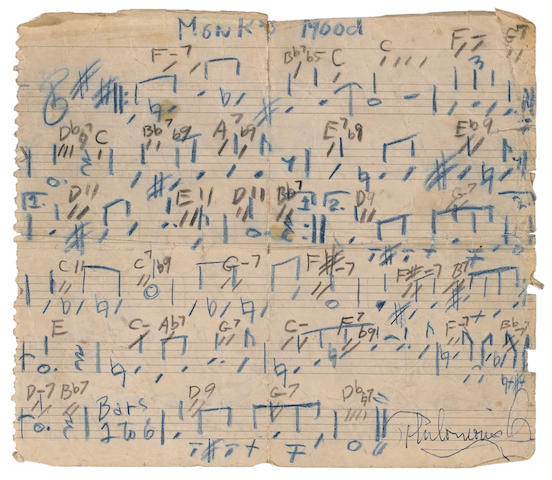 Monk's Mood
F-7 Bb7b5 C C F- G7
Db7 C Bb7b9 A7b9 E7b9 Eb9
1. D11 E11 D11 Bb7 1 2. D9 G-7 2
C11 C7b9 G-7 F#-7 F#-7 B7
E C- Ab7 G7 C- F7b9 F-7
D-7 Bb7 Bars 1 to 6 D9 G-7
Thelonious